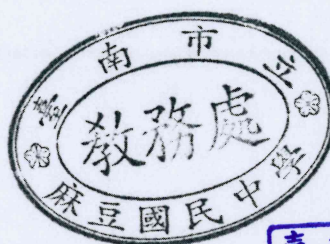 臺南市立
麻豆國民中學
教務處